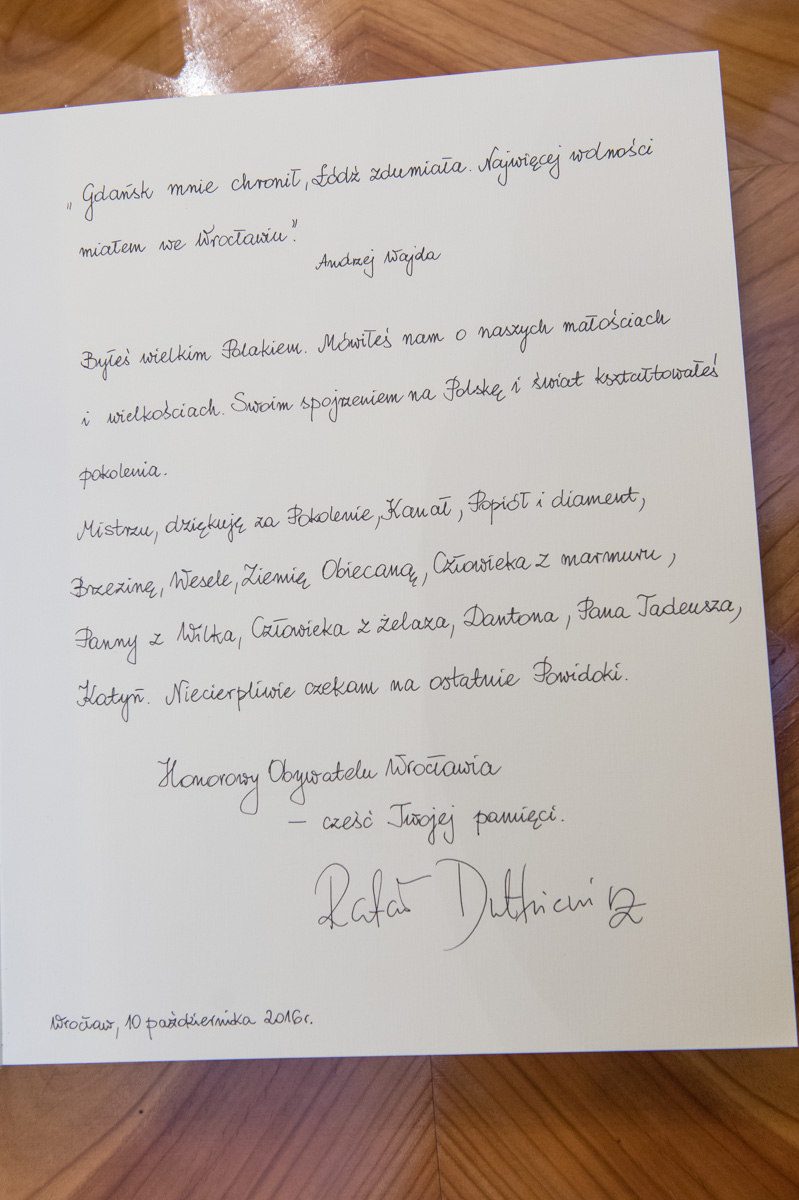 „Gdańsk mnie chronił, Łódź zdumiała. Najwięcej wolności
miałem we Wrocławiu".
Andrzej Wajda
Byłeś wielkim Polakiem. Mówiłeś nam o naszych małościach
i wielkościach. Swoim spojrzeniem na Polskę i świat kształtowałeś
pokolenia.
Mistrzu, dziękuję za Pokolenie, Kanał, Popiół i diament,
Brzezinę, Wesele, Ziemię Obiecaną, Człowieka z marmuru,
Panny z Wilka, Człowieka z żelaza, Dantona, Pana Tadeusza,
Katyń. Niecierpliwie czekam na ostatnie Powidoki.
Honorowy Obywatelu Wrocławia
— cześć Twojej pamięci.
Rafał Dutkiewicz
Wrocław, 10 października 2016r.